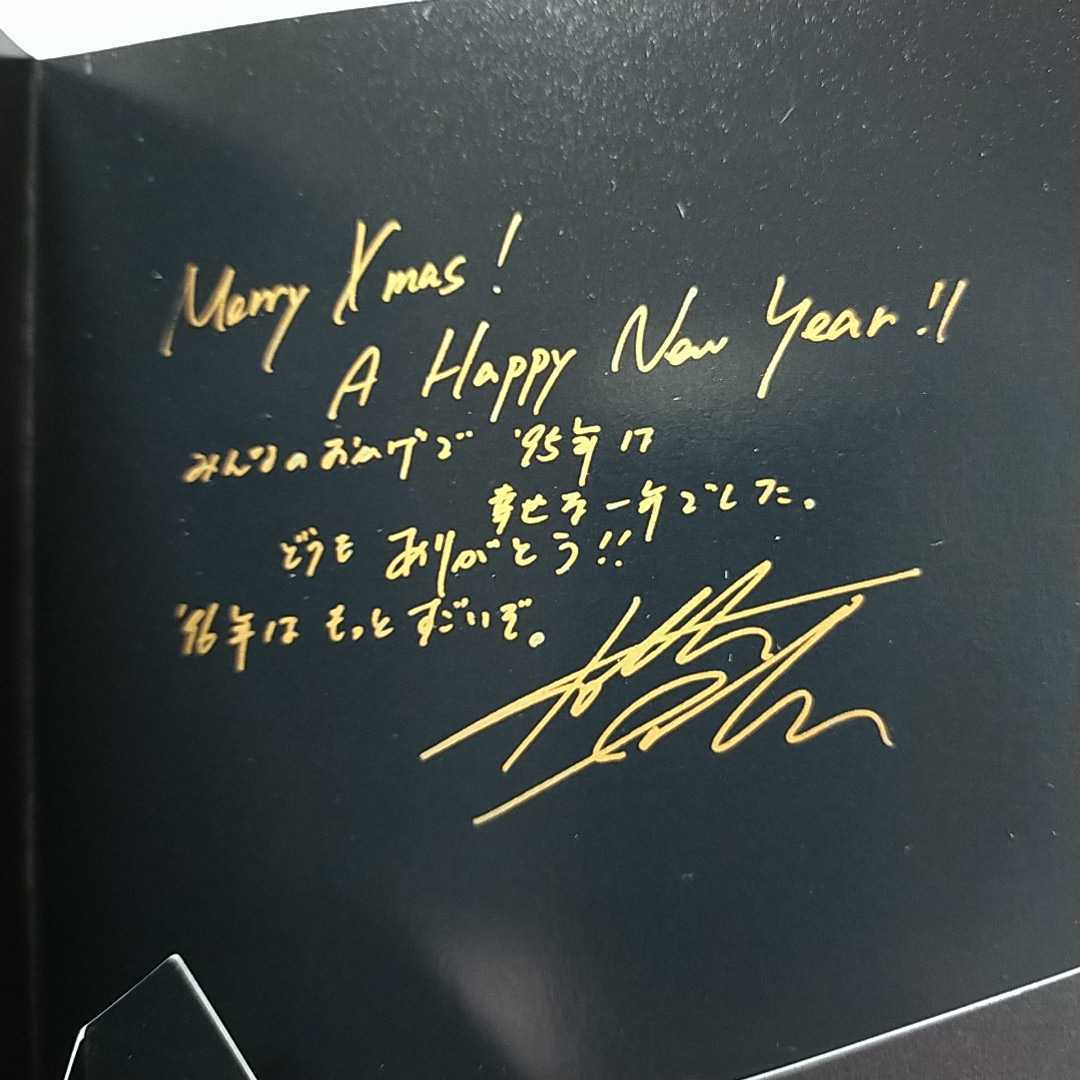 Merry Xmas!
A Happy New Year!!
みんなのおかげで '95年は
幸せな一年でした。
どうも ありがとう!!
'96年は もっと すごいぞ。